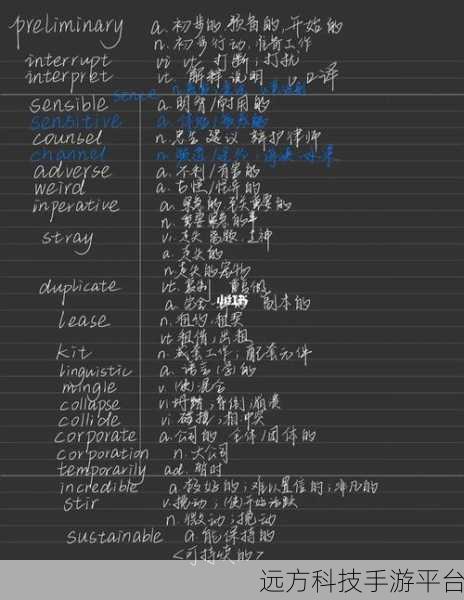 preliminary a. 初步的, 预备的, 开始的
n. 初步行动, 准备工作
interrupt vi vt. 打断; 打扰
interpret vt. 解释 说明 口译
sence n.
sensible a. 明智/耐用的
sensitive a.
counsel n. 忠告 建议 辩护律师
channel n.
adverse a. 不利/有害的
weird a. 古怪/怪异的
inperative a.
n.
stray vi. 走失 离散, 走神
a. 走失的
n. 走失的宠物
duplicate vt. 复制
小红书
a. 完全 副本的
lease n. 租约, 租契
vt 租借; 出租
kit n. 成套工作; 配套元件
linguistic a. 语言(学)的
mingle v. (使)混合
collapse vi 坍塌; 昏倒; 崩溃
collible vi 碰撞; 相冲突
corporate a. 公司的 全体/团体的
corporation n. 大公司
temporarily ad. 暂时
incredible a. 极好的; 难以置信的; 非凡的
stir v. 搅动; (使)开始活跃
n. 微动; 搅动
sustainable a. 能保持的
<可持续的>
远方科技手游平台